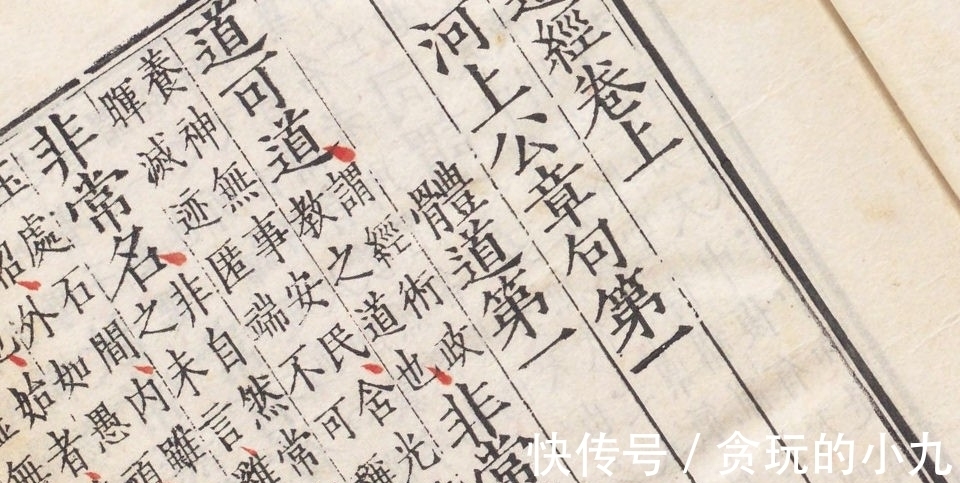 經卷上
河上公章句第一
體道第一
道可道
謂經術政
教之道也
非常
養神無事安民含光
暉滅迹匿端不可
非常名
非自然常
之未言雞
處石間內雖
外如愚頭
始者
無
快传号 / 贪玩的小九